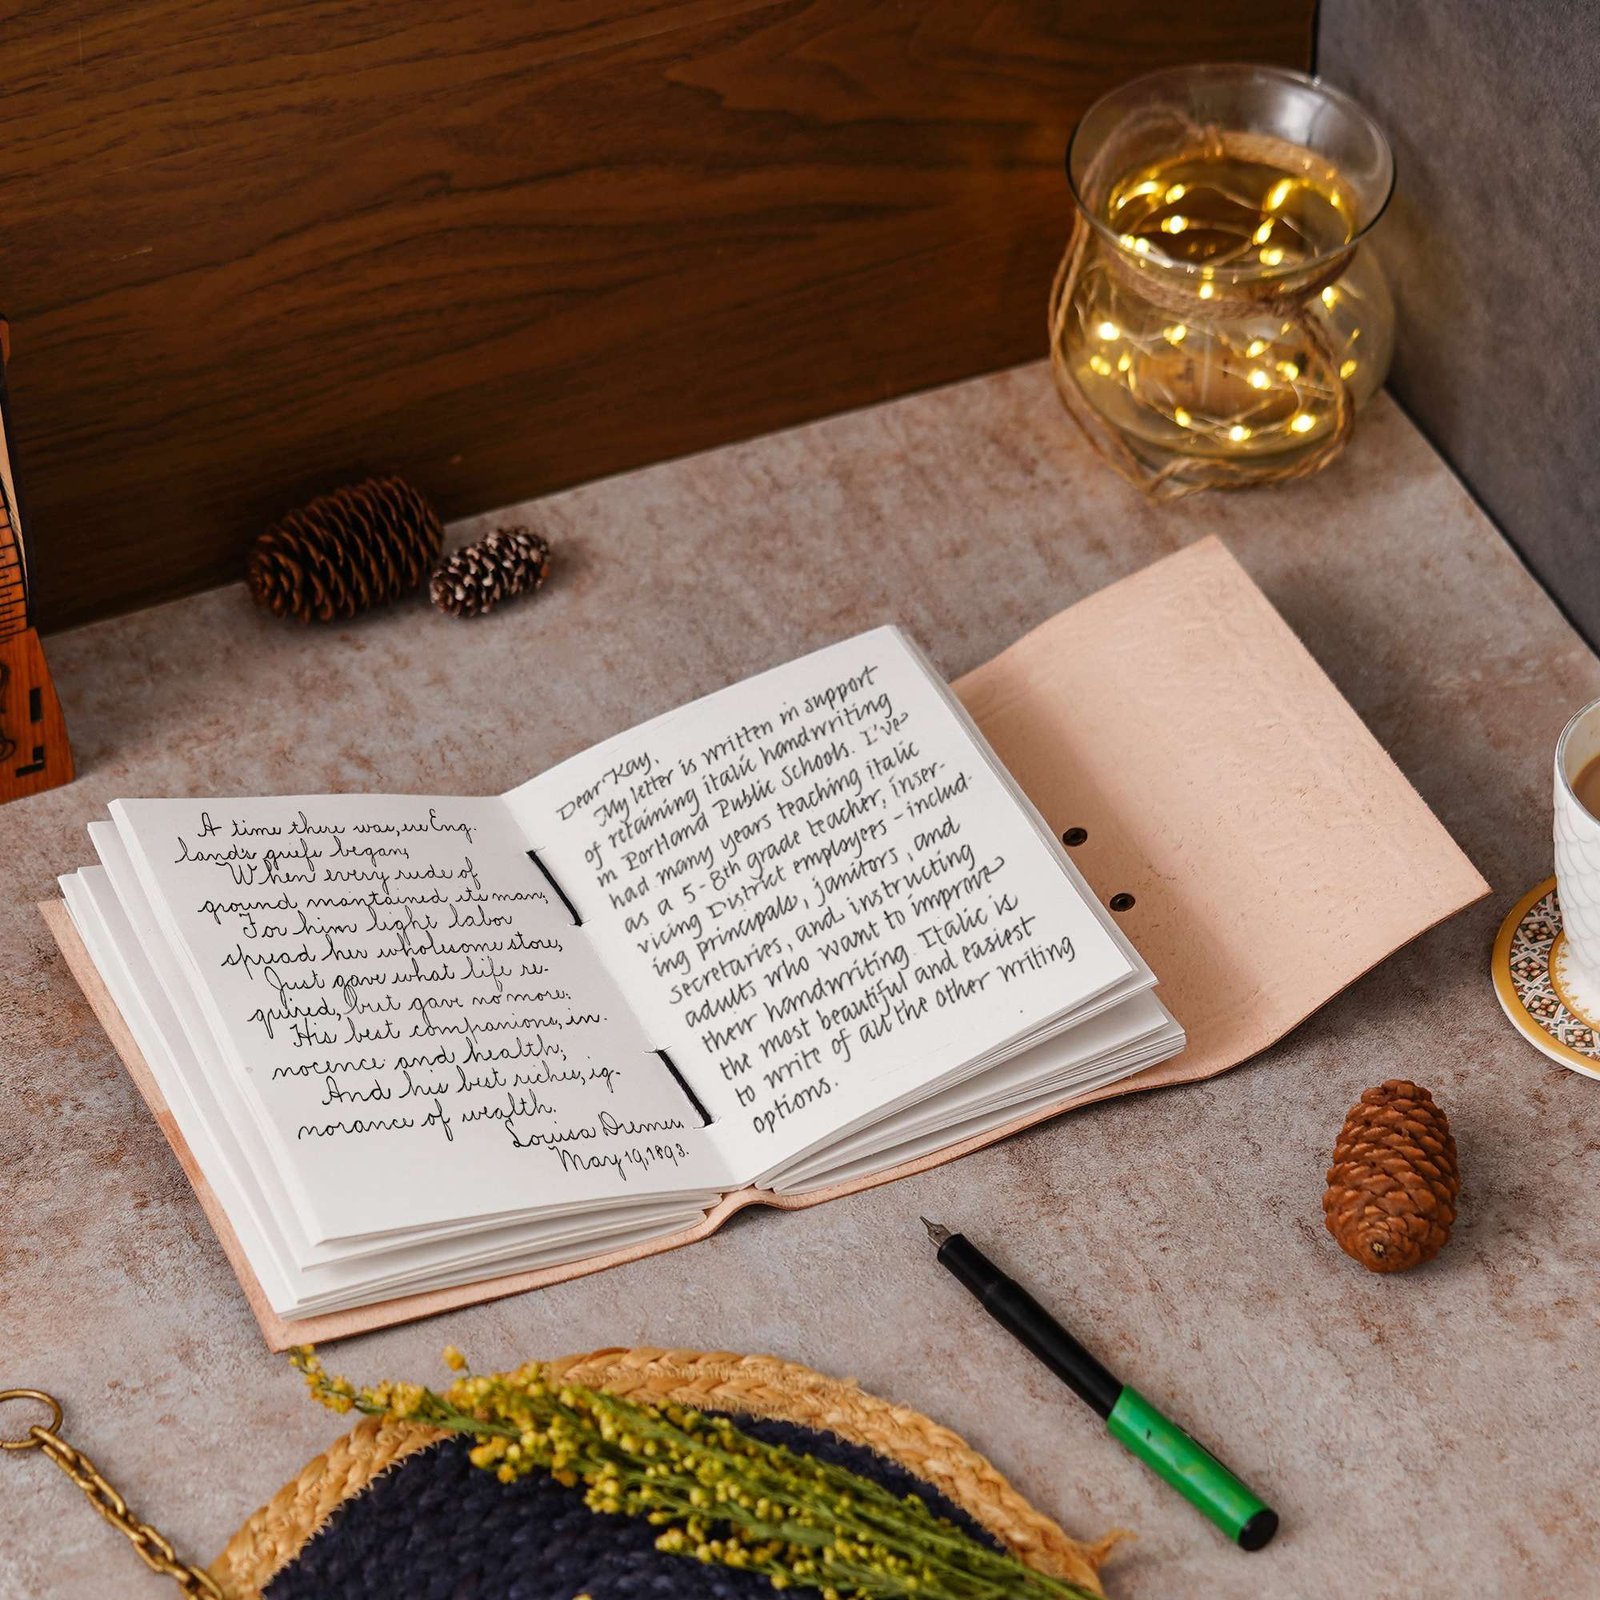 A time there was, ere Eng.
land's griefs began,
When every rude of
ground maintained its man;
For him light labor
spread her wholesome store,
Just gave what life re-
quired, but gave no more:
His best companions, in-
nocence and health;
And his best riches, ig-
norance of wealth.
Louisa
May 19, 1893.
Dear Kay,
My letter is written in support
of retaining italic handwriting
in Portland Public Schools. I've
had many years teaching italic
as a 5-8th grade teacher, inser-
vicing District employees - includ-
ing principals, janitors, and
secretaries, and instructing
adults who want to improve
their handwriting. Italic is
the most beautiful and easiest
to write of all the other writing
options.